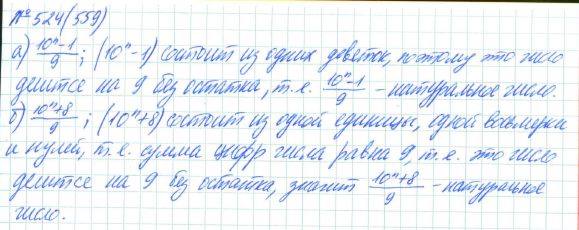 № 524(559)
а) (10ⁿ-1)/9; (10ⁿ-1) состоит из одних девяток, поэтому это число
делится на 9 без остатка, т.е. (10ⁿ-1)/9 - натуральное число.
б) (10ⁿ+8)/9; (10ⁿ+8) состоит из одной единицы, одной восьмерки
и нулей, т.е. сумма цифр числа равна 9, т.е. это число
делится на 9 без остатка, значит (10ⁿ+8)/9 - натуральное
число.